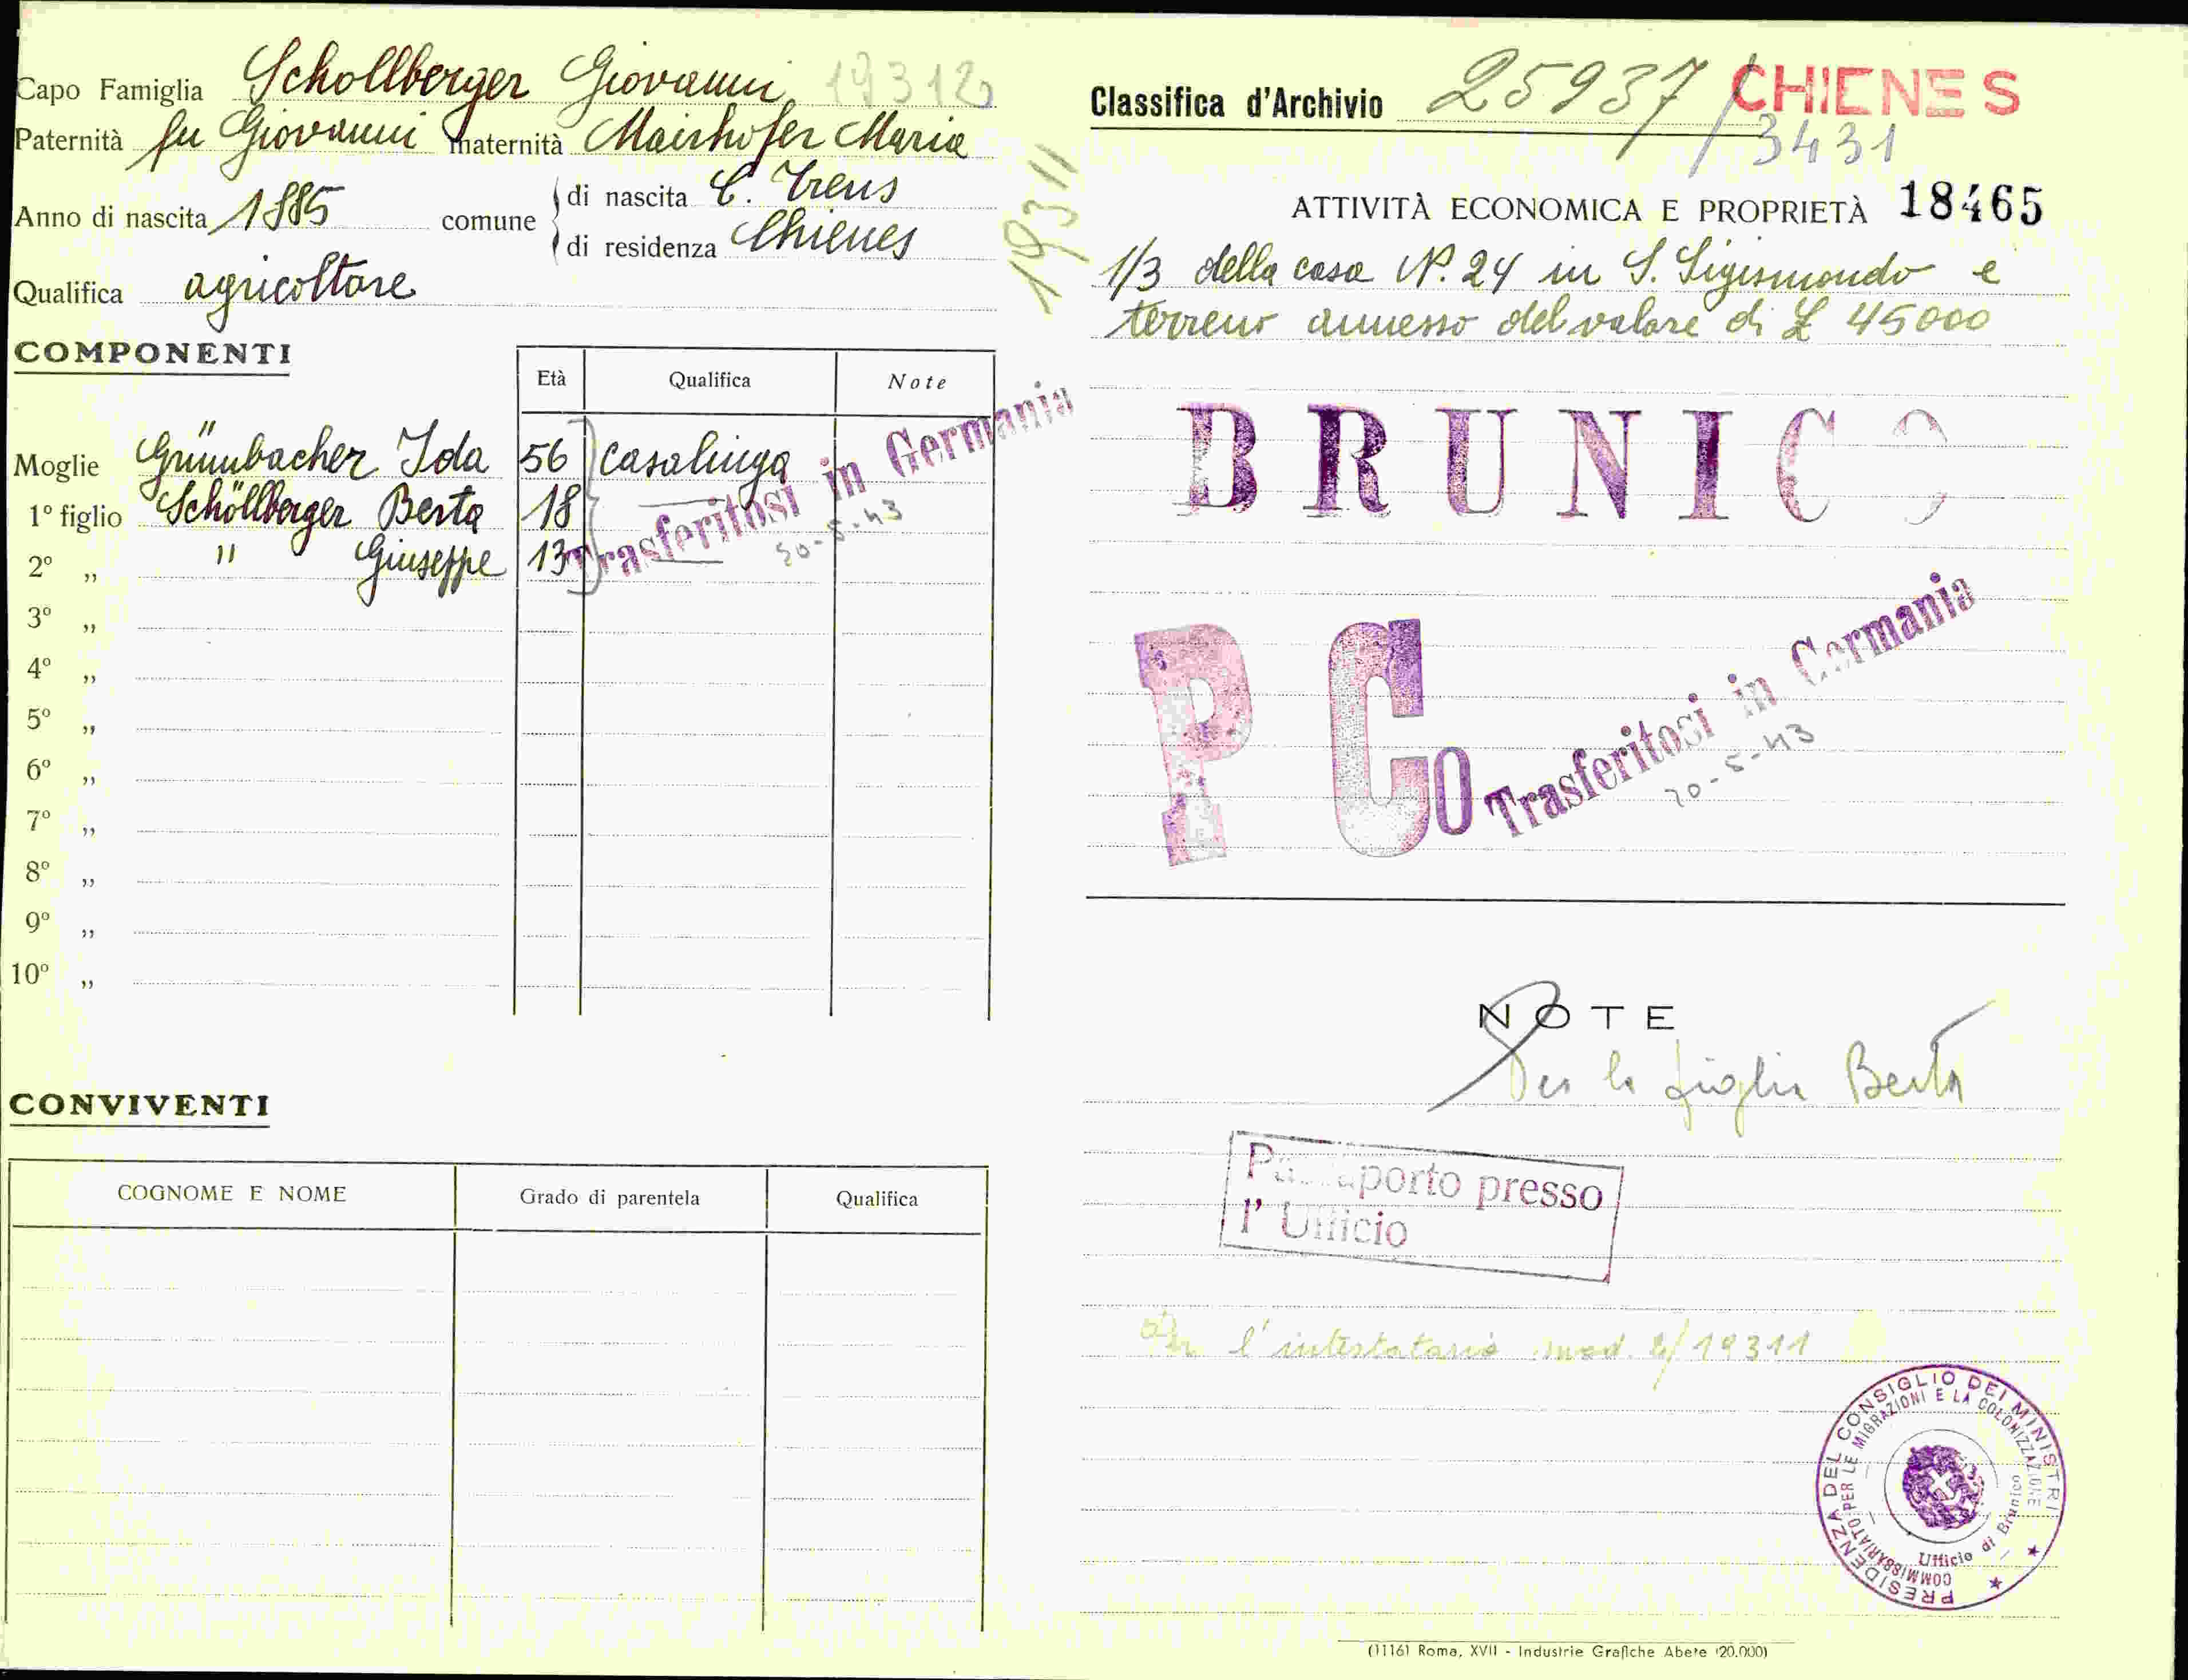 Capo Famiglia Schollberger Giovanni 19312
Paternità fu Giovanni maternità Mairhofer Maria
Anno di nascita 1885 comune di nascita C. Trens
di residenza Chienes
Qualifica agricoltore
19311
COMPONENTI
Età Qualifica Note
Moglie Grünbacher Ida 56 casalinga
1º figlio Schöllberger Berta 18
2º „ " Giuseppe 13
Trasferitosi in Germania
20-5-43
3º „
4º „
5º „
6º „
7º „
8º „
9º „
10º „
CONVIVENTI
COGNOME E NOME Grado di parentela Qualifica
Classifica d'Archivio 25937/ CHIENES
/3431
ATTIVITÀ ECONOMICA E PROPRIETÀ 18465
1/3 della casa N. 24 in S. Sigismondo e
terreno annesso del valore di £ 45000
BRUNICO
P Co Trasferitosi in Germania
20-5-43
NOTE
Per la figlia Berta
Passaporto presso
l'Ufficio
Per l'intestatario mod. 2/19311
PRESIDENZA DEL CONSIGLIO DEI MINISTRI
COMMISSARIATO PER LE MIGRAZIONI E LA COLONIZZAZIONE
Ufficio di Brunico
(1116) Roma, XVII - Industrie Grafiche Abete (20.000)